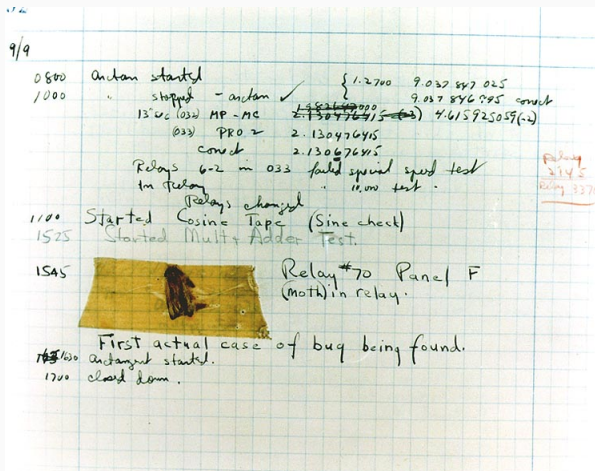 9/9
0800 Antan started
1000 " stopped - antan ✓ { 1.2700 9.037 847 025
9.037 846 995 correct
13"uc (032) MP-MC 2.130476415 4.615925059(-2)
(033) PRO 2 2.130476415
correct 2.130676415
Relays 6-2 in 033 failed special speed test
In Relay " 10,000 test.
Relays changed
Relay
3370
1100 Started Cosine Tape (Sine check)
1525 Started Mult+Adder Test.
1545 Relay #70 Panel F
(moth) in relay.
First actual case of bug being found.
1630 antangent started.
1700 closed down.